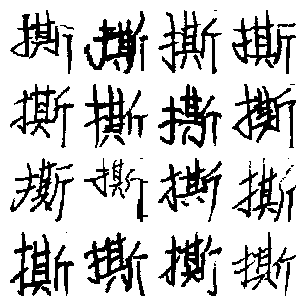 撕 撕 撕 撕
撕 撕 撕 撕
撕 撕 撕 撕
撕 撕 撕 撕